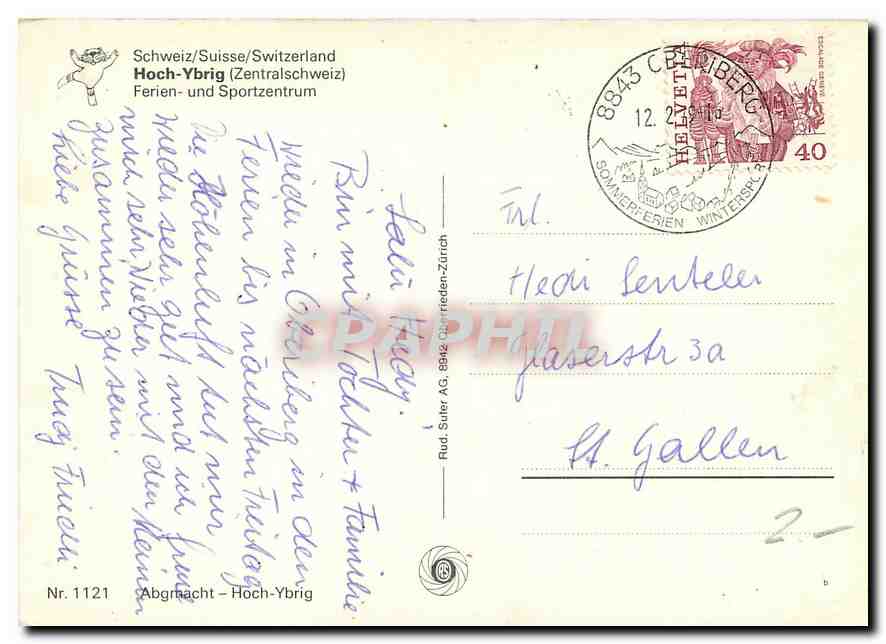 Schweiz/Suisse/Switzerland
Hoch-Ybrig (Zentralschweiz)
Ferien- und Sportzentrum
Salü Hedy.
Bin mit Tochter + Familie
wieder in Oberiberg in den
Ferien bis nächsten Freitag
Die Höhenluft tut mir
wieder sehr gut und ich freue
mich sehr, wieder mit den Meinen
zusammen zu sein.
Liebe Grüsse Trudj
Nr. 1121 Abgmacht – Hoch-Ybrig
Rud. Suter AG, 8942 Oberrieden-Zürich
8843 OBERIBERG
12. 2.
SOMMERFERIEN WINTERSPORT
HELVETIA
ESCALADE GENÈVE
40
Frl.
Hedi Senteler
Glaserstr 3a
St. Gallen
2.—
b
CPAPHIL